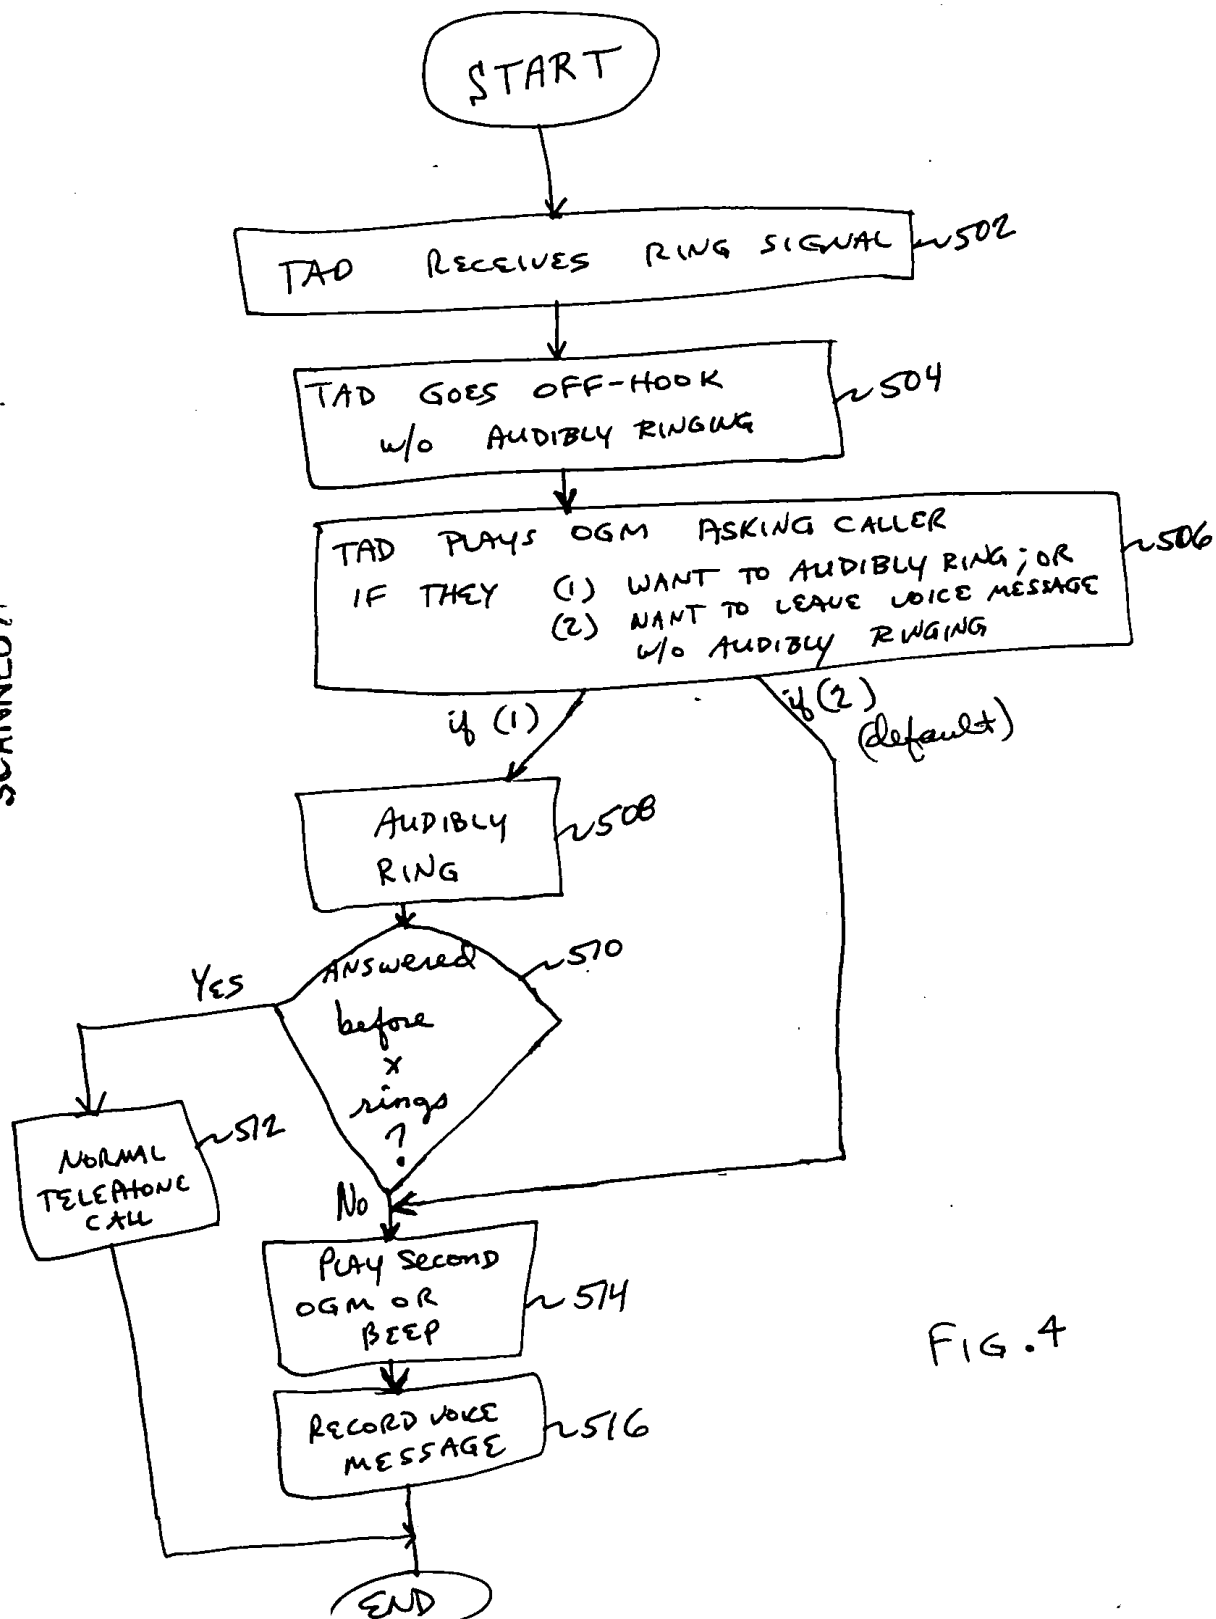 START
TAD RECEIVES RING SIGNAL
502
TAD GOES OFF-HOOK
w/o AUDIBLY RINGING
504
TAD PLAYS OGM ASKING CALLER
IF THEY (1) WANT TO AUDIBLY RING; OR
(2) WANT TO LEAVE VOICE MESSAGE
w/o AUDIBLY RINGING
506
if (1)
if (2)
(default)
AUDIBLY
RING
508
ANSWERED
before
x
rings
?
510
YES
No
NORMAL
TELEPHONE
CALL
512
PLAY SECOND
OGM OR
BEEP
514
RECORD VOICE
MESSAGE
516
END
FIG. 4